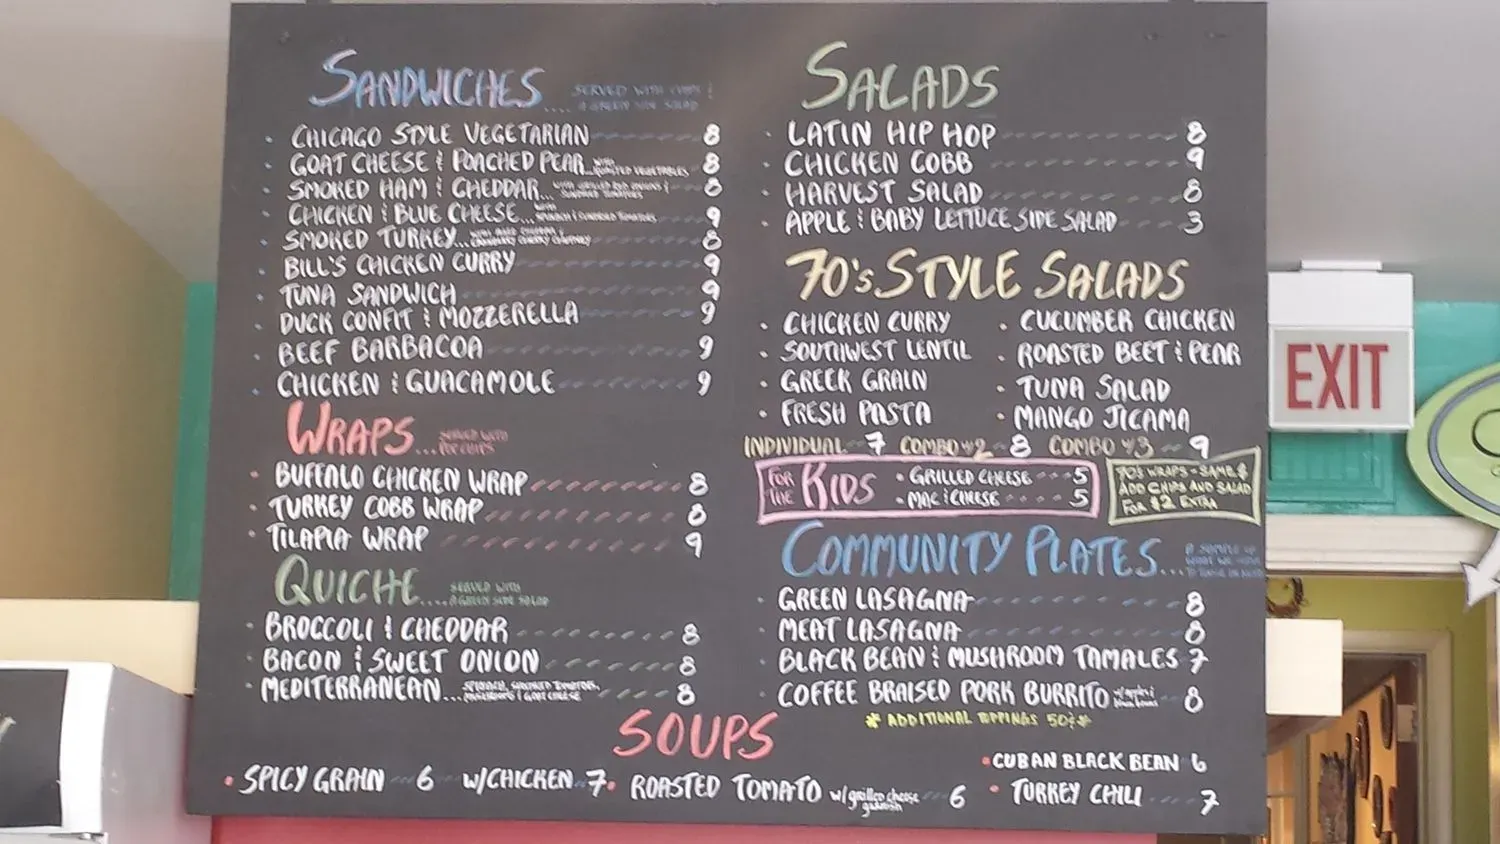 SANDWICHES .... SERVED WITH CHIPS &
A GREEN SIDE SALAD
CHICAGO STYLE VEGETARIAN 8
GOAT CHEESE & POACHED PEAR... WITH ROASTED VEGETABLES 8
SMOKED HAM & CHEDDAR... WITH GRILLED RED ONIONS & SUNDRIED TOMATOES 8
CHICKEN & BLUE CHEESE... WITH SPINACH & SUNDRIED TOMATOES 9
SMOKED TURKEY... WITH CRANBERRY CHERRY CHUTNEY 8
BILL'S CHICKEN CURRY 9
TUNA SANDWICH 9
DUCK CONFIT & MOZZERELLA 9
BEEF BARBACOA 9
CHICKEN & GUACAMOLE 9
WRAPS ... SERVED WITH
CHIPS
BUFFALO CHICKEN WRAP 8
TURKEY COBB WRAP 8
TILAPIA WRAP 9
QUICHE .... SERVED WITH
A GREEN SIDE SALAD
BROCCOLI & CHEDDAR 8
BACON & SWEET ONION 8
MEDITERRANEAN... SPINACH, SUNDRIED TOMATOES, MUSHROOMS & GOAT CHEESE 8
SALADS
LATIN HIP HOP 8
CHICKEN COBB 9
HARVEST SALAD 8
APPLE & BABY LETTUCE SIDE SALAD 3
70's STYLE SALADS
CHICKEN CURRY
SOUTHWEST LENTIL
GREEK GRAIN
FRESH PASTA
CUCUMBER CHICKEN
ROASTED BEET & PEAR
TUNA SALAD
MANGO JICAMA
INDIVIDUAL 7 COMBO w/2 8 COMBO w/3 9
FOR THE KIDS
GRILLED CHEESE 5
MAC & CHEESE 5
70'S WRAPS - SAME $
ADD CHIPS AND SALAD
FOR $2 EXTRA
COMMUNITY PLATES.... A SAMPLE OF
WHAT WE HAVE
GREEN LASAGNA 8
MEAT LASAGNA 8
BLACK BEAN & MUSHROOM TAMALES 7
COFFEE BRAISED PORK BURRITO w/apples & 8
* ADDITIONAL TOPPINGS 50¢ *
SOUPS
SPICY GRAIN 6 W/CHICKEN 7
ROASTED TOMATO w/grilled cheese garnish 6
CUBAN BLACK BEAN 6
TURKEY CHILI 7
EXIT